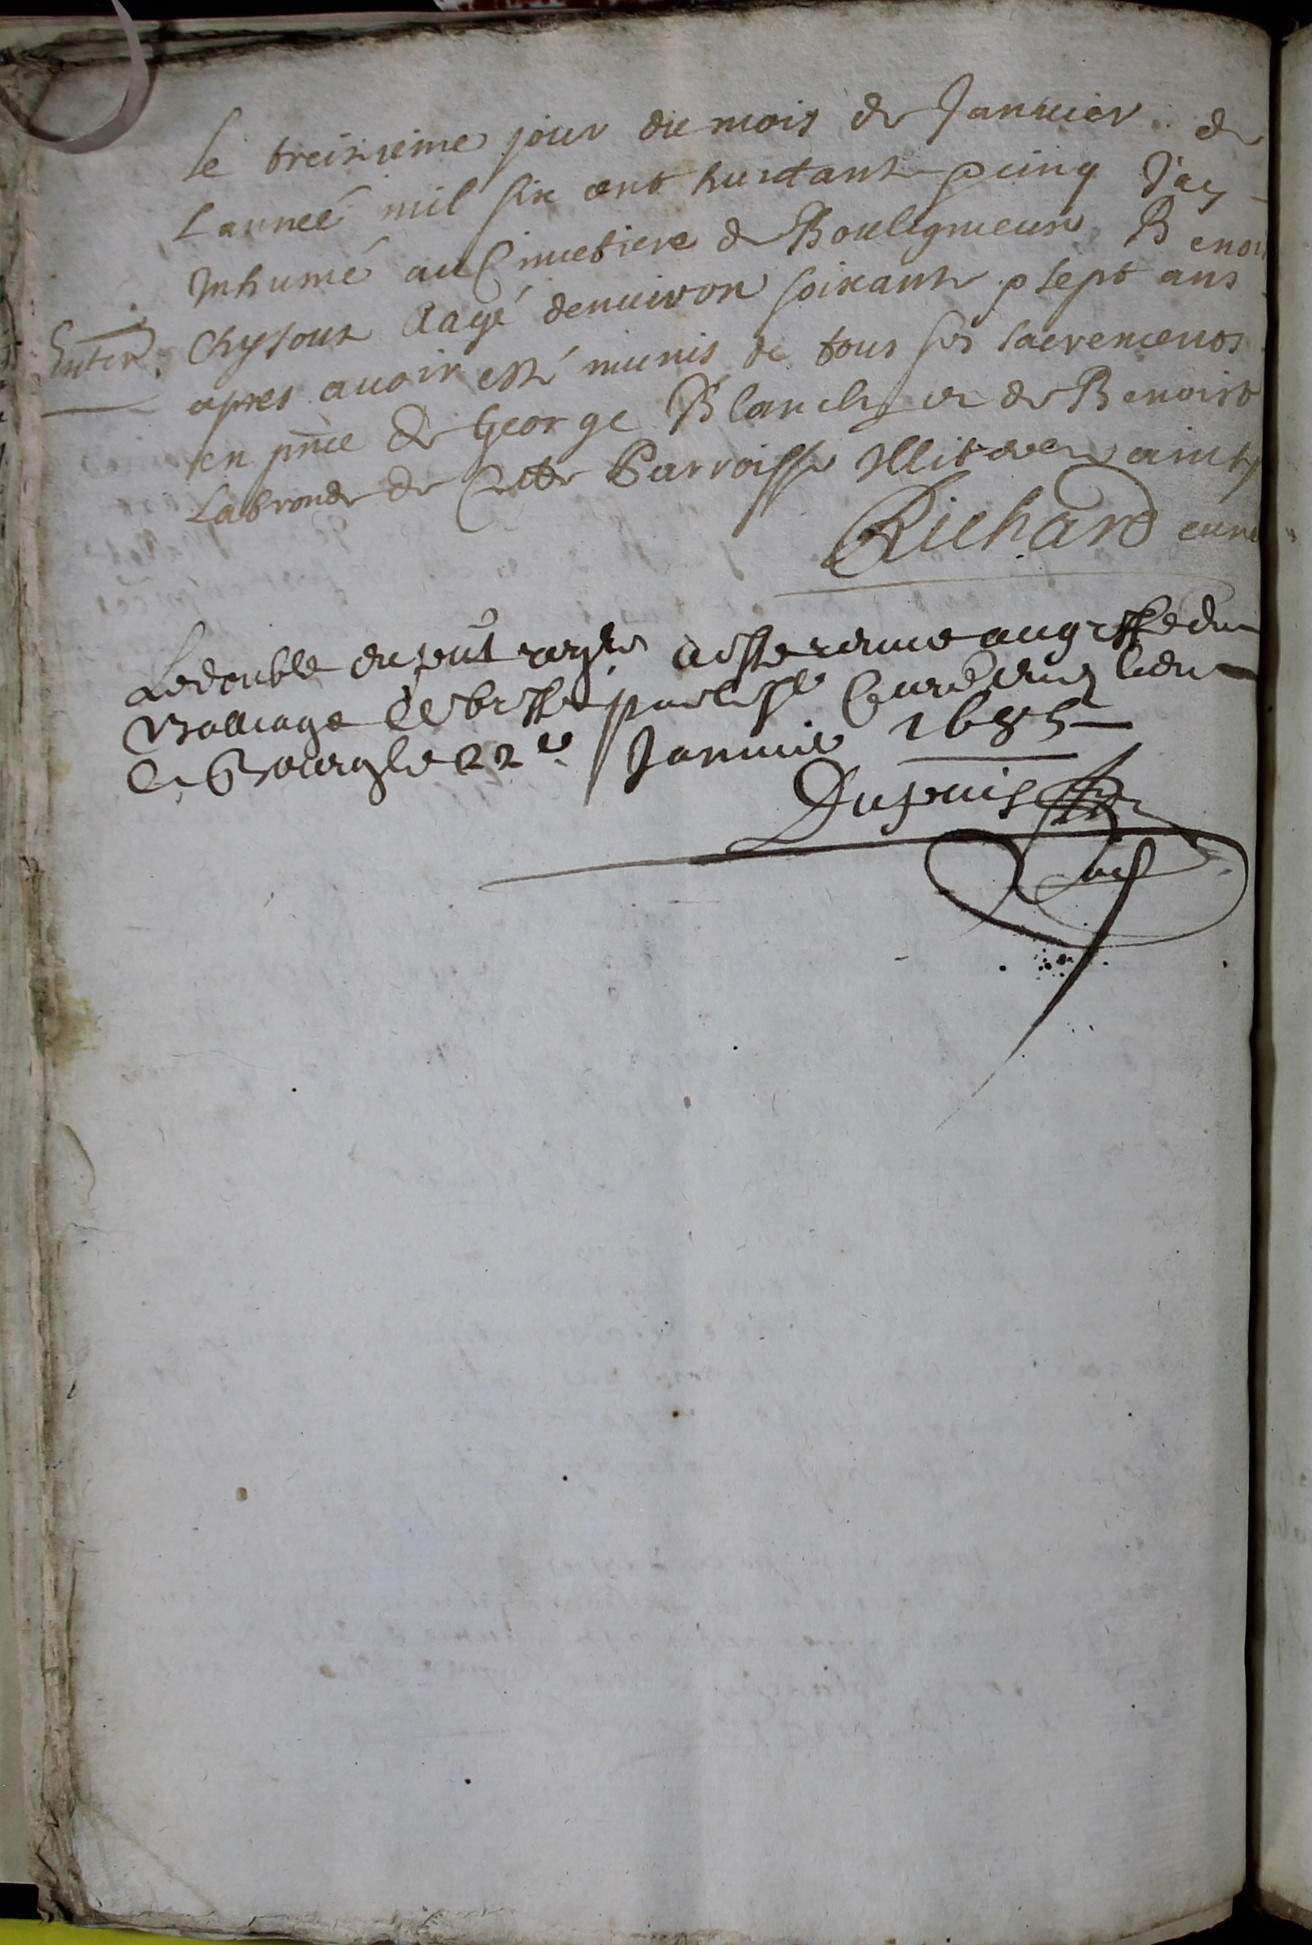 le treisieme jour du mois de Januier de
Lanneé mil six cent huictante & cinq J'ay
Inhumé au Cimetiere de Bouligneux Benoi
Enter. Chysout Aagé denuiron soixante & sept ans
apres auoir esté munis de tous ses sacremens
en pnce de George Blanch et de Benoist
Labronde de Cette Parroisse
Richard curé
Le double du pnt regre a esté remis au greffe du
Balliage de bresse par le Sr Curé dud lieu
A Bourg le 22e Januie 1685
Dupuis